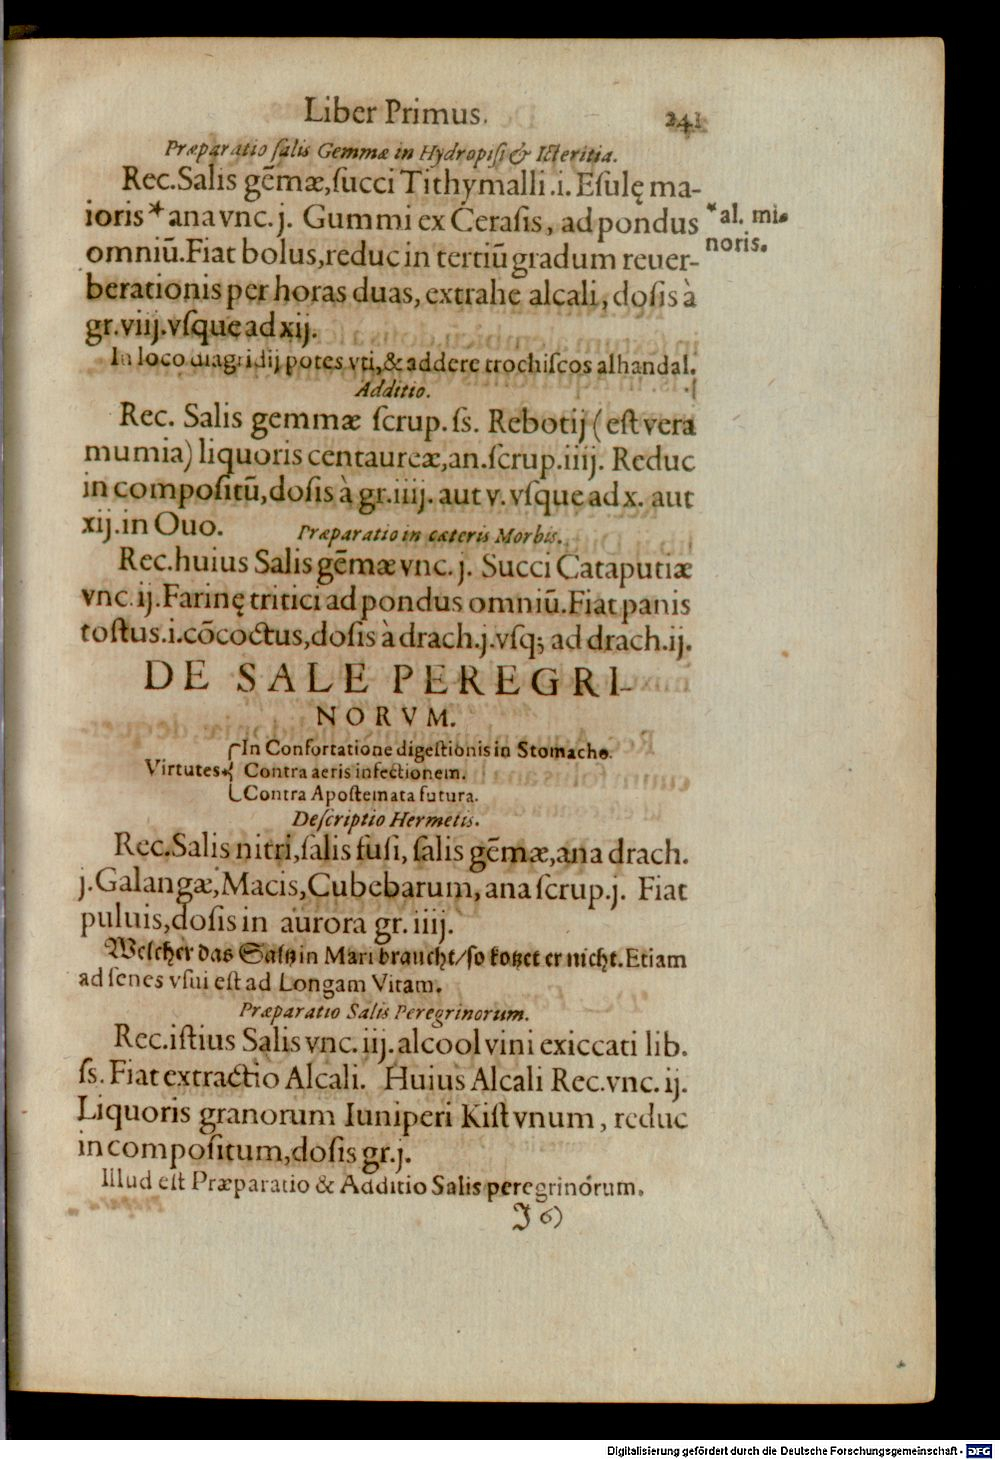 Liber Primus. 241
Præparatio salis Gemmæ in Hydropisi & Icteritia.
Rec. Salis gēmæ, succi Tithymalli .i. Esulę ma-
ioris * ana vnc. j. Gummi ex Cerasis, ad pondus
*al. mi-
noris.
omniū. Fiat bolus, reduc in tertiū gradum reuer-
berationis per horas duas, extrahe alcali, dosis à
gr. viij. vsque ad xij.
In loco diagridij potes vti, & addere trochiscos alhandal.
Additio.
Rec. Salis gemmæ scrup. ss. Rebotij (est vera
mumia) liquoris centaureæ, an. scrup. iiij. Reduc
in compositū, dosis à gr. iiij. aut v. vsque ad x. aut
xij. in Ouo.
Præparatio in cæteris Morbis.
Rec. huius Salis gēmæ vnc. j. Succi Cataputiæ
vnc. ij. Farinę tritici ad pondus omniū. Fiat panis
tostus .i. cōcoctus, dosis à drach. j. vsq; ad drach. ij.
DE SALE PEREGRI-
NORVM.
In Confortatione digestionis in Stomacho.
Virtutes. Contra aeris infectionem.
Contra Apostemata futura.
Descriptio Hermetis.
Rec. Salis nitri, salis fusi, salis gēmæ, ana drach.
j. Galangæ, Macis, Cubebarum, ana scrup. j. Fiat
puluis, dosis in aurora gr. iiij.
Welcher das Saltz in Mari braucht/ so kotzet er nicht. Etiam
ad senes vsui est ad Longam Vitam.
Præparatio Salis Peregrinorum.
Rec. istius Salis vnc. iij. alcool vini exiccati lib.
ss. Fiat extractio Alcali. Huius Alcali Rec. vnc. ij.
Liquoris granorum Iuniperi Kist vnum, reduc
in compositum, dosis gr. j.
Illud est Præparatio & Additio Salis peregrinorum.
Digitalisierung gefördert durch die Deutsche Forschungsgemeinschaft - DFG